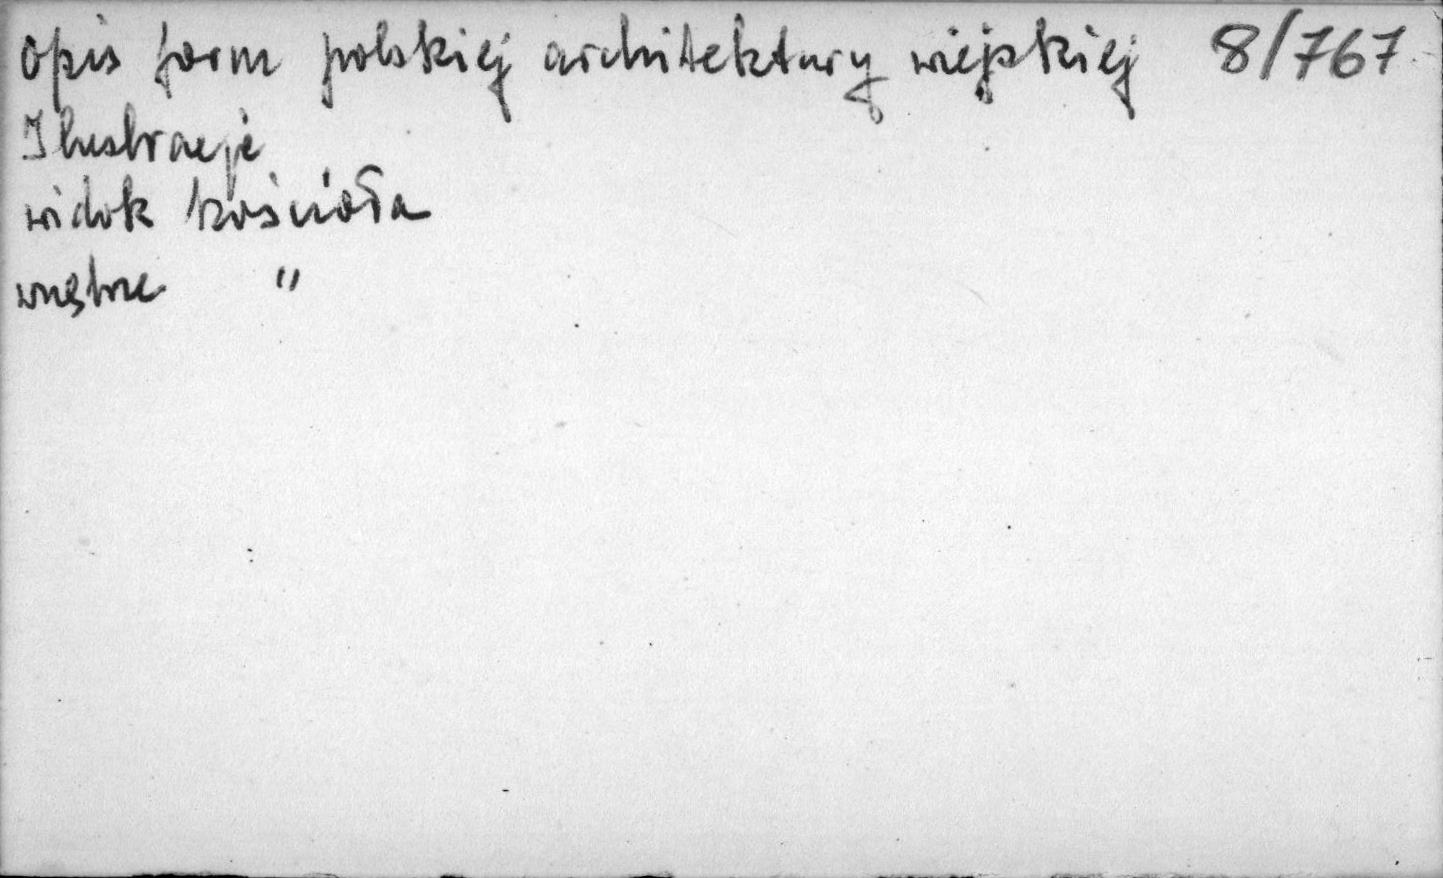 opis form polskiej architektury wiejskiej 8/767
Ilustracje
widok kościoła
wnętrze "